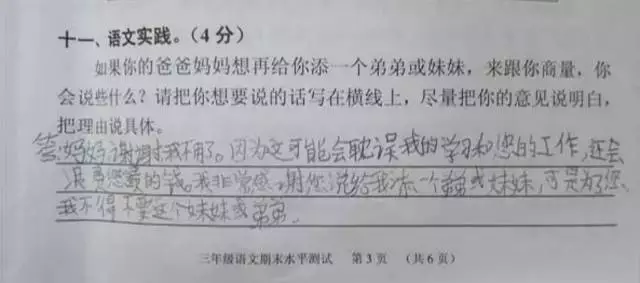 十一、语文实践。(4分)
如果你的爸爸妈妈想再给你添一个弟弟或妹妹，来跟你商量，你
会说些什么？请把你想要说的话写在横线上，尽量把你的意见说明白，
把理由说具体。
答:妈妈谢谢我不用了。因为这可能会耽误我的学习和您的工作,还会
浪费您的钱。我非常感谢您说给我添一个弟弟或妹妹,可是为了您、
我不得不要这个妹妹或弟弟.
三年级语文期末水平测试 第3页 (共6页)